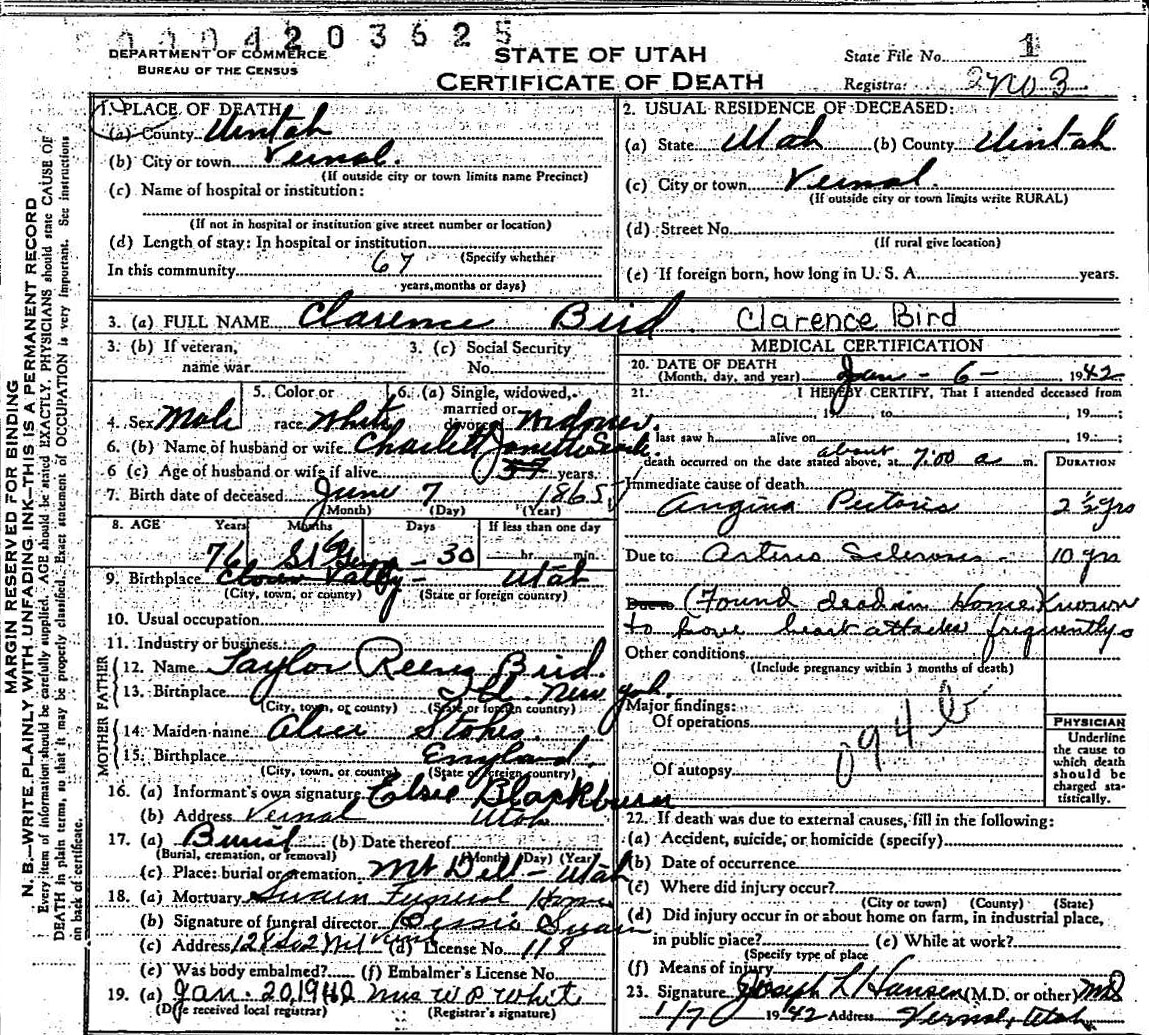 0004203625
DEPARTMENT OF COMMERCE
BUREAU OF THE CENSUS
STATE OF UTAH
CERTIFICATE OF DEATH
State File No. 1
Registrar 2 No 3
MARGIN RESERVED FOR BINDING
N. B.—WRITE PLAINLY WITH UNFADING INK—THIS IS A PERMANENT RECORD
Every item of information should be carefully supplied. AGE should be stated EXACTLY. PHYSICIANS should state CAUSE OF
DEATH in plain terms, so that it may be properly classified. Exact statement of OCCUPATION is very important. See instructions
on back of certificate.
1. PLACE OF DEATH
(a) County Uintah
(b) City or town Vernal.
(If outside city or town limits name Precinct)
(c) Name of hospital or institution:
(If not in hospital or institution give street number or location)
(d) Length of stay: In hospital or institution
(Specify whether
In this community 67
years, months or days)
2. USUAL RESIDENCE OF DECEASED:
(a) State Utah (b) County Uintah
(c) City or town Vernal.
(If outside city or town limits write RURAL)
(d) Street No.
(If rural give location)
(e) If foreign born, how long in U. S. A. years.
3. (a) FULL NAME Clarence Bird. Clarence Bird
3. (b) If veteran, name war
3. (c) Social Security No.
4. Sex Male
5. Color or race White
6. (a) Single, widowed, married or divorced Widower.
6. (b) Name of husband or wife Charlett Janette
6 (c) Age of husband or wife if alive 57 years.
7. Birth date of deceased June 7 1865
(Month) (Day) (Year)
8. AGE Years Months Days If less than one day
76 6 30 hr. min.
St Geo
9. Birthplace Clover Vally - Utah
(City, town, or county) (State or foreign country)
10. Usual occupation
11. Industry or business
FATHER
12. Name Taylor Reeves Bird.
13. Birthplace New York.
(City, town, or county) (State or foreign country)
MOTHER
14. Maiden name Alice Stokes.
15. Birthplace England.
(City, town, or county) (State or foreign country)
16. (a) Informant's own signature Elsie Blackburn
(b) Address Vernal Utah
17. (a) Burial (b) Date thereof
(Burial, cremation, or removal) (Month) (Day) (Year)
(c) Place: burial or cremation Mt Dell - Utah
18. (a) Mortuary Swain Funeral Home
(b) Signature of funeral director Bessie Swain
(c) Address 128 So 2nd W Vernal (d) License No. 118
(e) Was body embalmed? (f) Embalmer's License No.
19. (a) Jan. 20, 1942 Mrs W P White
(Date received local registrar) (Registrar's signature)
MEDICAL CERTIFICATION
20. DATE OF DEATH
(Month, day, and year) Jan - 6 - 1942
21. I HEREBY CERTIFY, That I attended deceased from
, 19 , to , 19 ;
I last saw h alive on , 19 ;
death occurred on the date stated above, at about 7:00 a m.
DURATION
Immediate cause of death
Angina Pectoris 2 ½ yrs
Due to Arterio Sclerosis - 10 yrs
Due to (Found dead in Home. Known
to have heart attacks frequently
Other conditions
(Include pregnancy within 3 months of death)
Major findings:
Of operations
094 b
Of autopsy
PHYSICIAN
Underline
the cause to
which death
should be
charged sta-
tistically.
22. If death was due to external causes, fill in the following:
(a) Accident, suicide, or homicide (specify)
(b) Date of occurrence
(c) Where did injury occur?
(City or town) (County) (State)
(d) Did injury occur in or about home on farm, in industrial place,
in public place? (e) While at work?
(Specify type of place
(f) Means of injury
23. Signature Joseph L Hansen (M.D. or other) Md
1/7 1942 Address Vernal, Utah